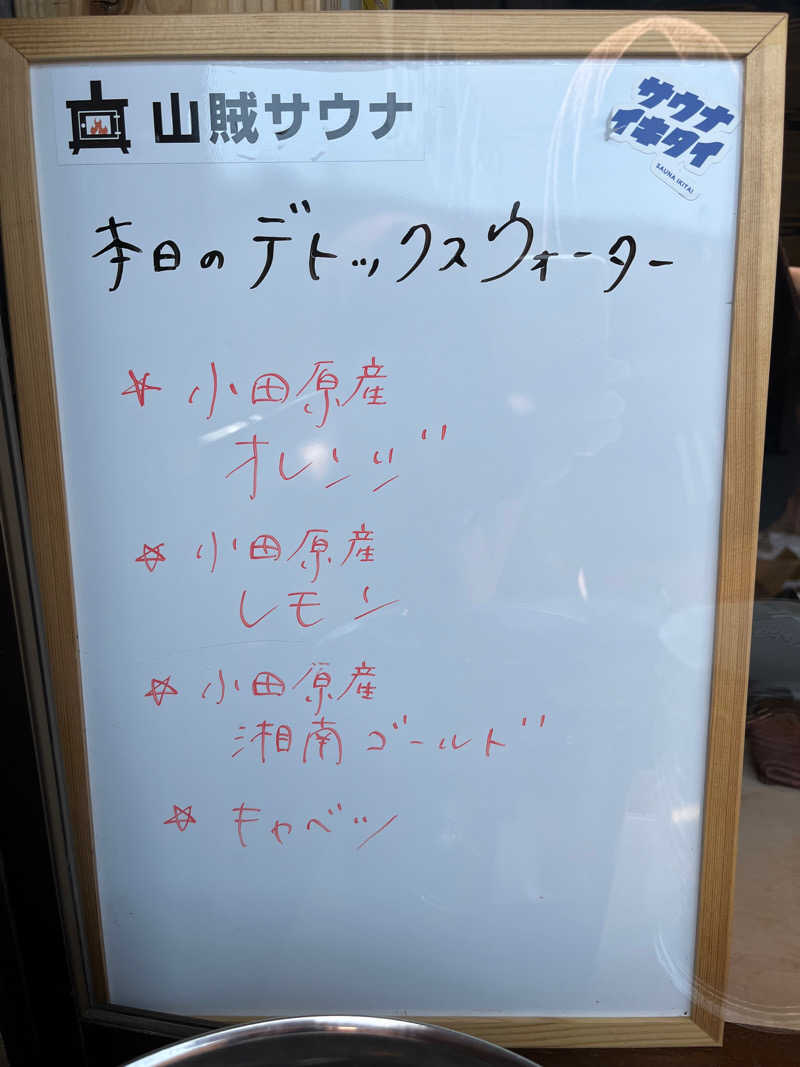 山賊サウナ
サウナ
イキタイ
SAUNA IKITAI
本日のデトックスウォーター
☆ 小田原産
オレンジ
☆ 小田原産
レモン
☆ 小田原産
湘南ゴールド
☆ キャベツ